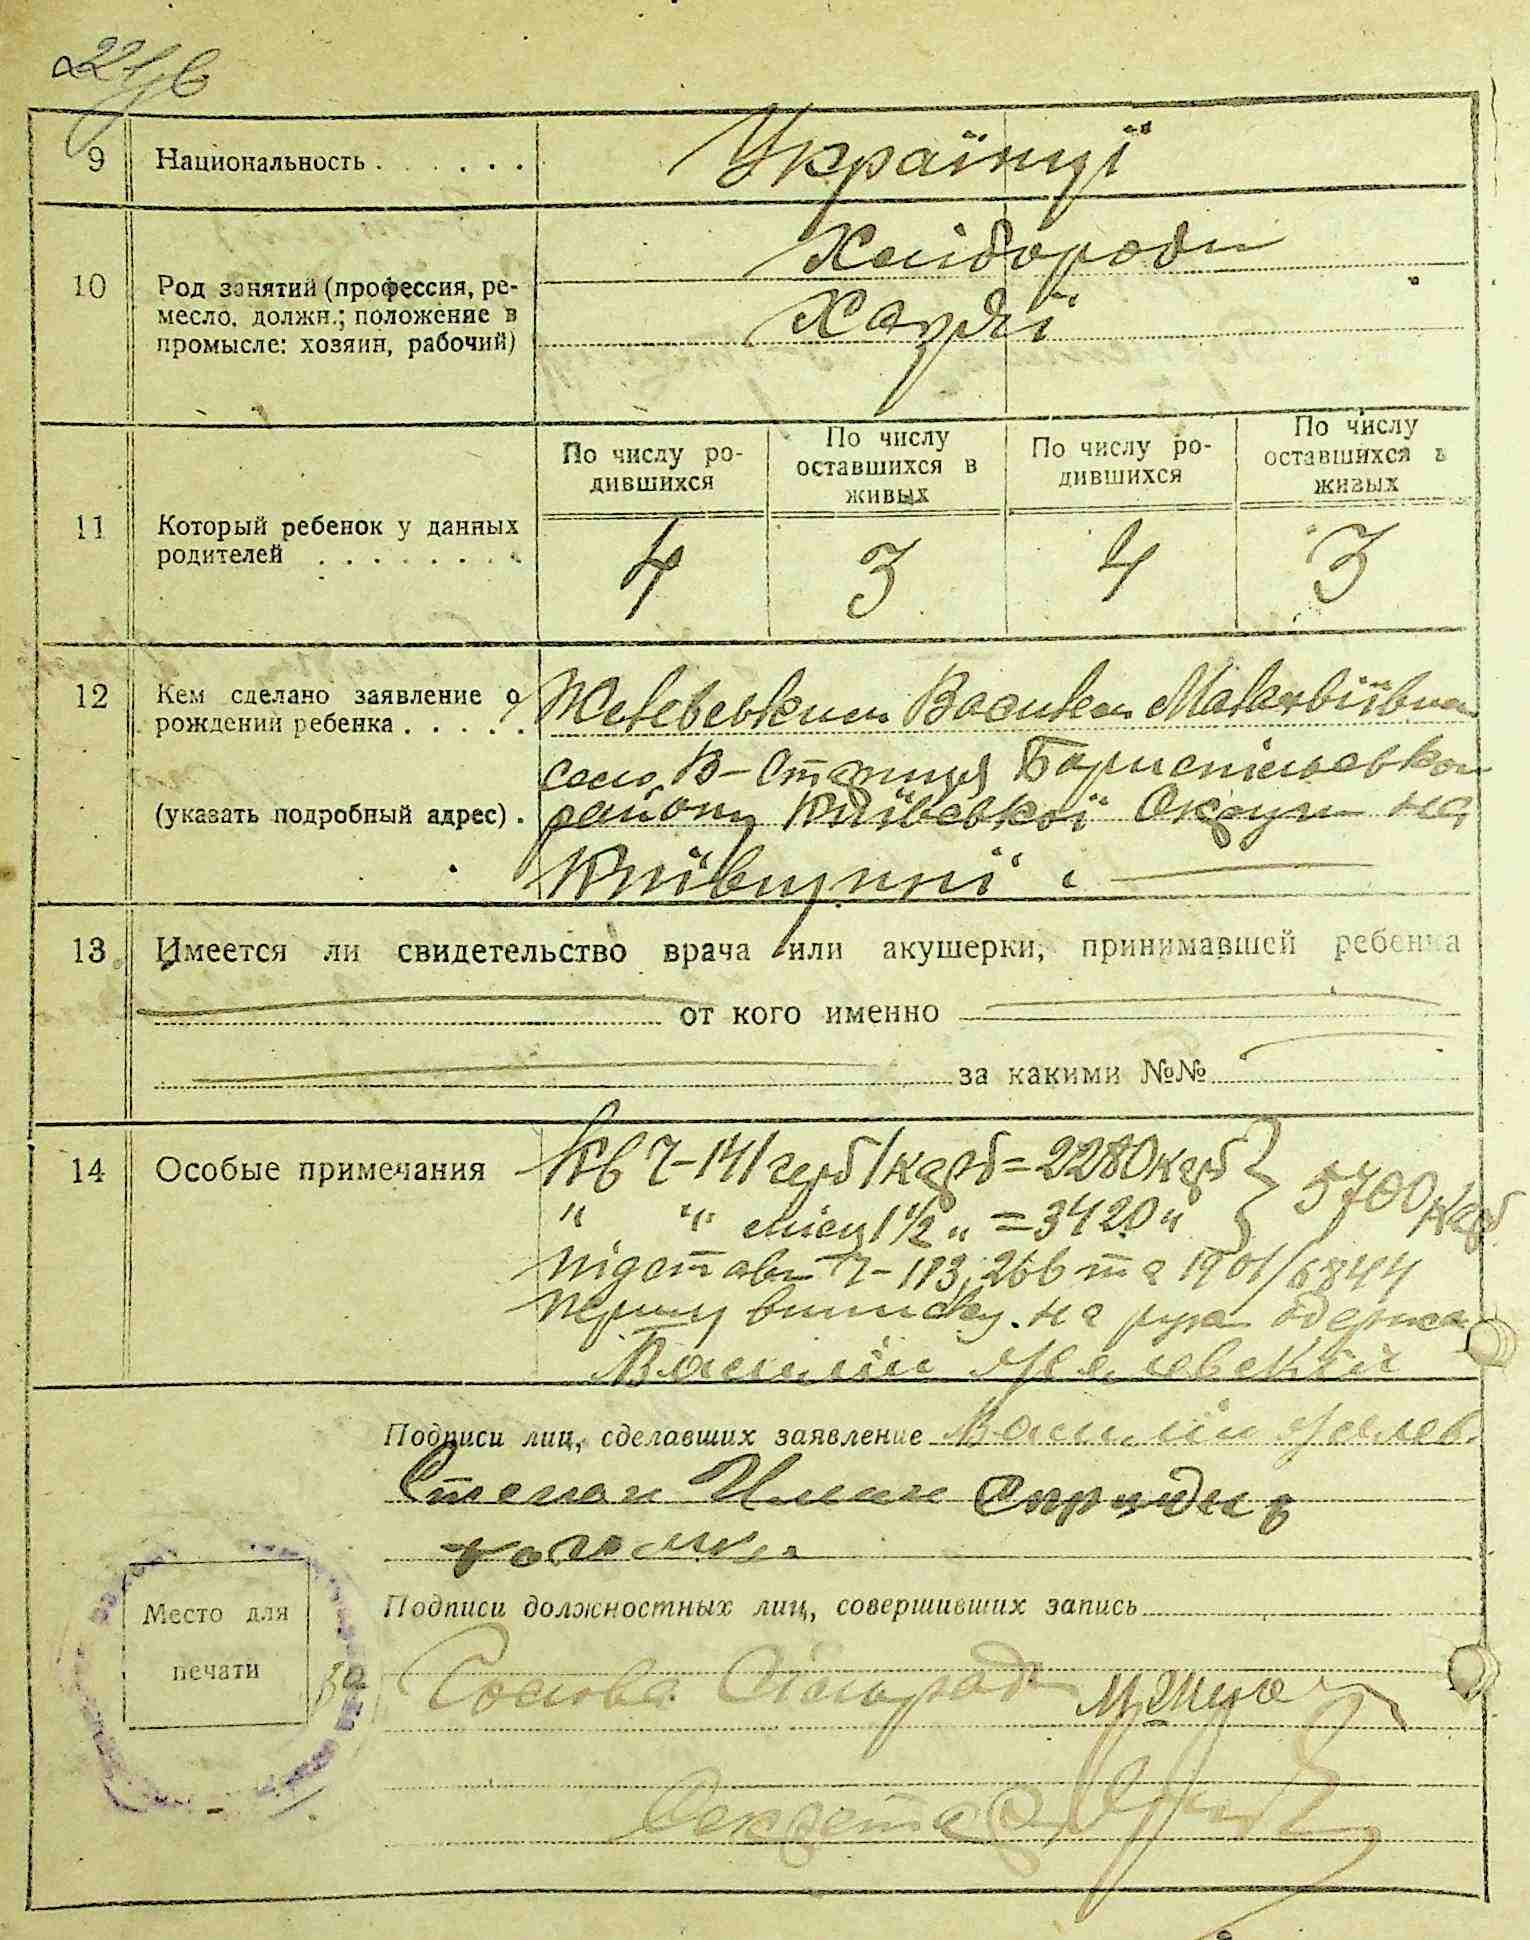 9 Национальность . . . . . . Українці
10 Род занятий (профессия, ре-
месло, должн.; положение в
промысле: хозяин, рабочий)
Хлібороби
Хазяї
11 Который ребенок у данных
родителей . . . . . . . .
По числу ро-
дившихся
По числу
оставшихся в
живых
По числу ро-
дившихся
По числу
оставшихся в
живых
4 3 4 3
12 Кем сделано заявление о
рождении ребенка . . . . .
(указать подробный адрес) .
Василем
село В-Стариця Бориспільського
району Київської Округи на
Київщині
13 Имеется ли свидетельство врача или акушерки, принимавшей ребенка
от кого именно
за какими №№
14 Особые примечания
Кв Ч-141 герб 1 крб = 2280 крб
" " місц 1 1/2 " = 3420 " 5700 крб
Підстава Ч-113, 266 та 1901/6844
першу виписку на руки одержав
Василій
Подписи лиц, сделавших заявление Василій
Степан
Подписи должностных лиц, совершивших запись
Место для
печати
за Голова Сільради
Секретар